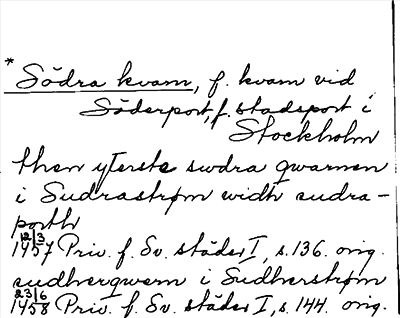 * Södra kvarn, f. kvarn vid
Söderport, f. stadsport i
Stockholm
then yterste swdra qwarnen
i Sudrastrøm widh sudra-
porth
12/3 1457 Priv. f. Sv. städer I, s. 136. orig.
sudherqwern i Sudherstrøm
23/6 1458 Priv. f. Sv. städer I, s. 144. orig.